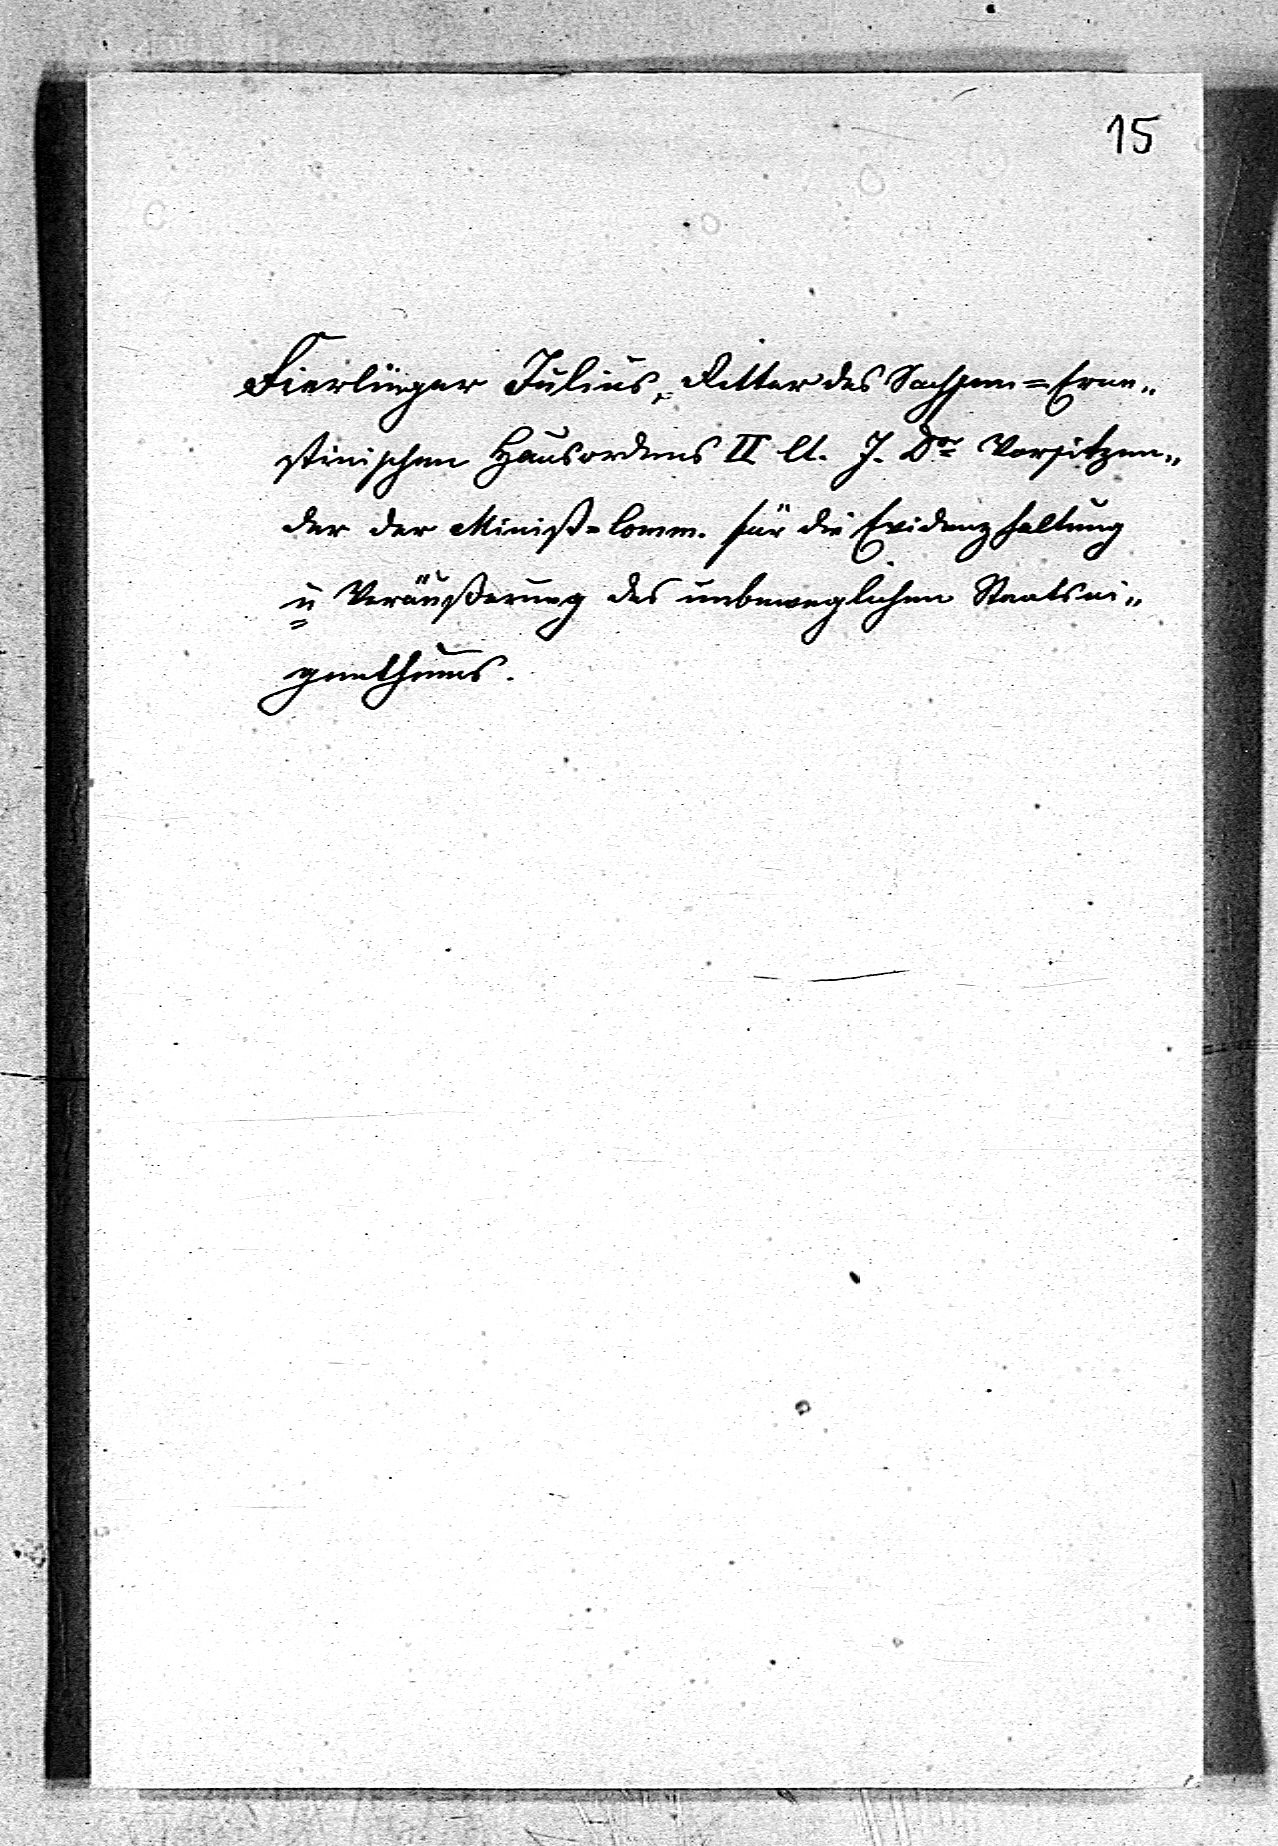 15
Fierlinger Julius, Ritter des Sachsen=Erne„
stinischen Hausordens II Cl. J. Dor Vorsitzen„
der der Minist=Comm. für die Evidenzhaltung
u Veräußerung des unbeweglichen Staatsei„
genthums.